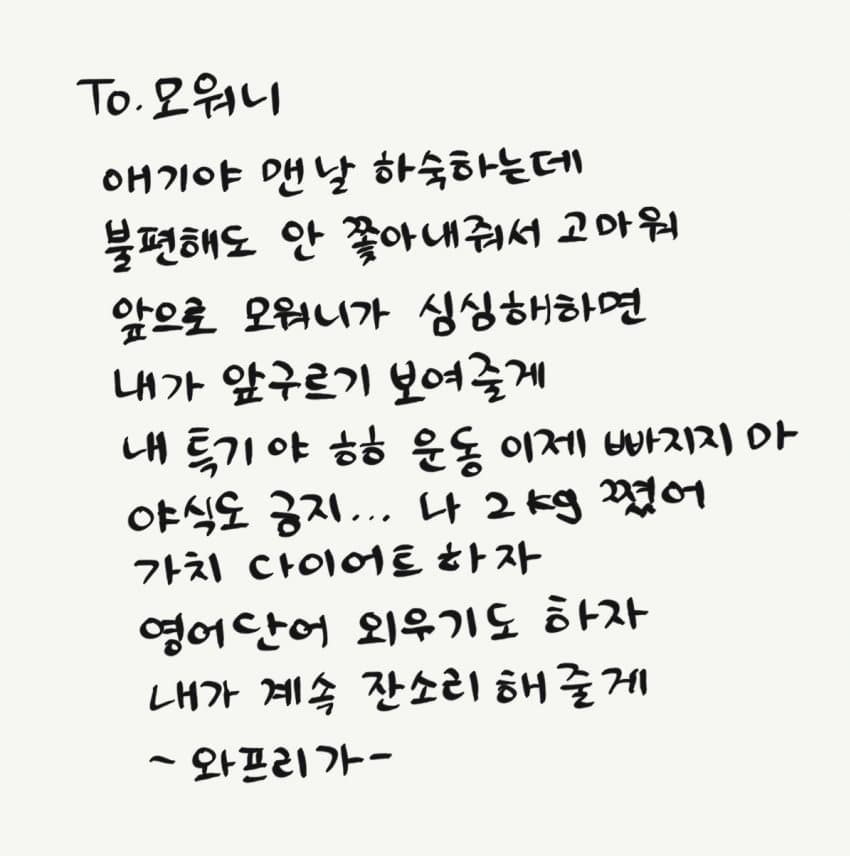 To. 모워니
애기야 맨날 하숙하는데
불편해도 안 쫓아내줘서 고마워
앞으로 모워니가 심심해하면
내가 앞구르기 보여줄게
내 특기야 ㅎㅎ 운동 이제 빠지지 마
야식도 금지... 나 2kg 쪘어
가치 다이어트 하자
영어단어 외우기도 하자
내가 계속 잔소리 해줄게
~ 와프리가-